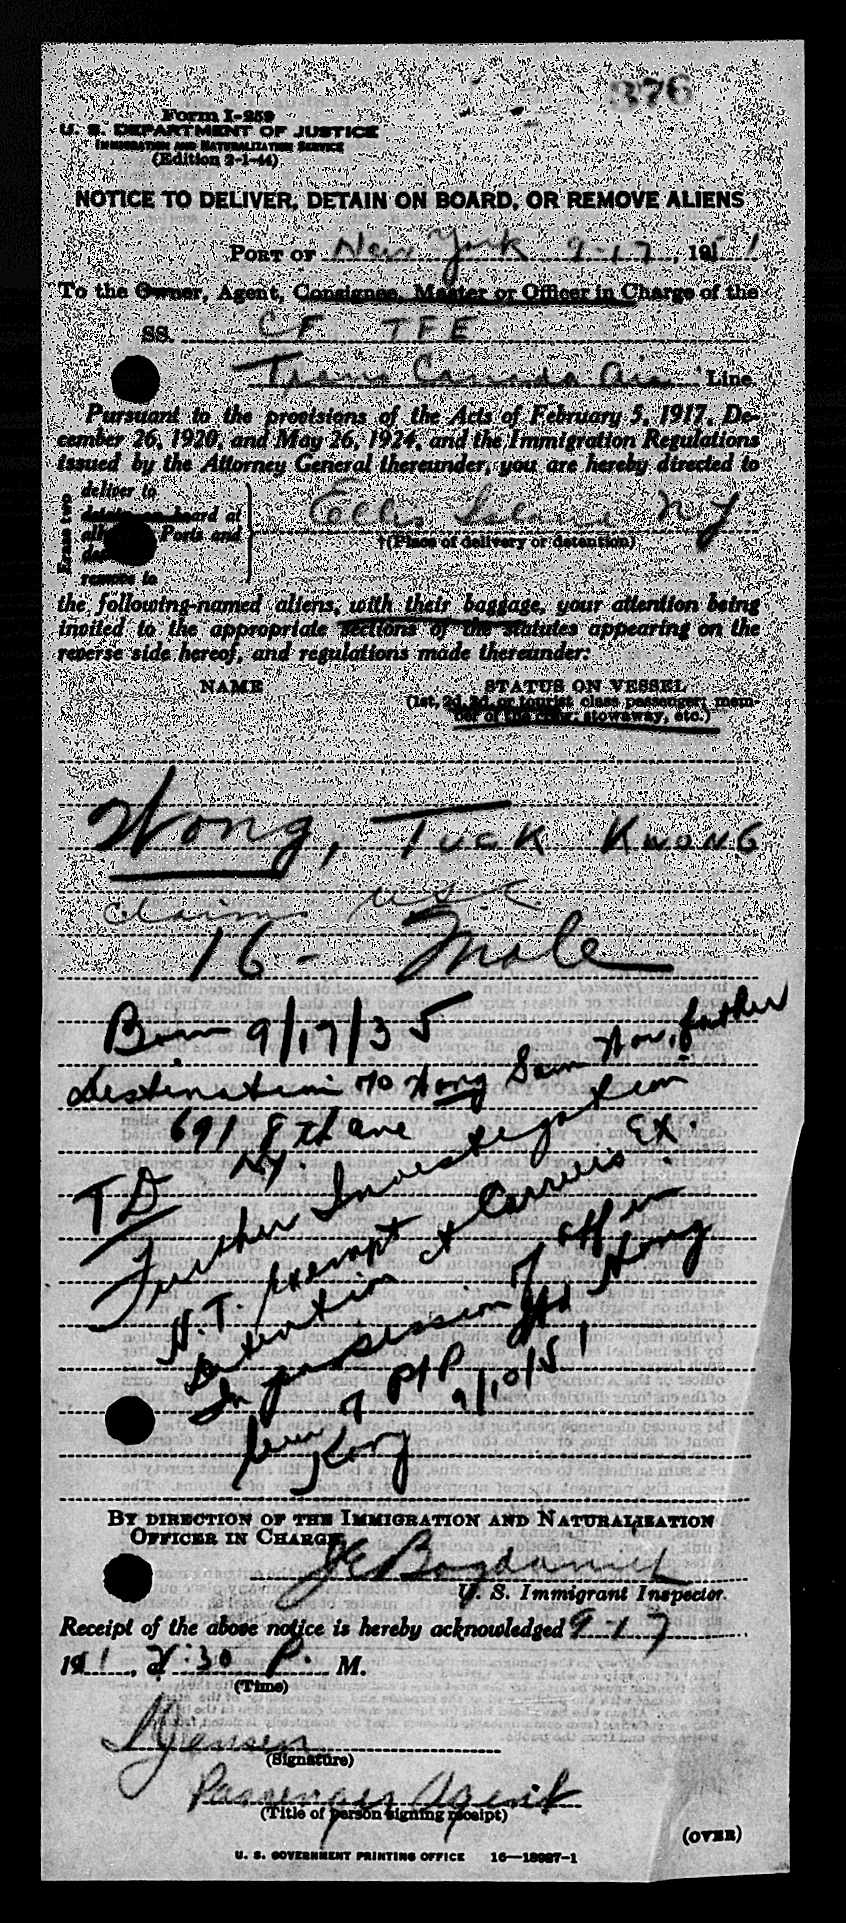 376
Form I-259
U. S. DEPARTMENT OF JUSTICE
IMMIGRATION AND NATURALIZATION SERVICE
(Edition 2-1-44)
NOTICE TO DELIVER, DETAIN ON BOARD, OR REMOVE ALIENS
PORT OF New York 9-17, 1951
To the Owner, Agent, Consignee, Master or Officer in Charge of the
SS. CF TFE
Trans Canada Air Line
Pursuant to the provisions of the Acts of February 5, 1917, De-
cember 26, 1920, and May 26, 1924, and the Immigration Regulations
issued by the Attorney General thereunder, you are hereby directed to
Erase two
deliver to
detain on board at
all Ports and
remove to
Ellis Island N Y.
†(Place of delivery or detention)
the following-named aliens, with their baggage, your attention being
invited to the appropriate sections of the statutes appearing on the
reverse side hereof, and regulations made thereunder:
NAME STATUS ON VESSEL
(1st, 2d, 3d, or tourist class passenger; mem-
ber of the crew, stowaway, etc.)
Wong, TUCK KWONG
Claims U.S.C
16 - Male
Born 9/17/35
Destination to Wong Sam Wor, father
691 8th ave
NY.
TD
Further Investigation
H.T. Exempt
Detention at Carriers Ex.
In possession of aff in
lieu of P/P Hong
Kong 9/10/51
BY DIRECTION OF THE IMMIGRATION AND NATURALIZATION
OFFICER IN CHARGE
U. S. Immigrant Inspector.
Receipt of the above notice is hereby acknowledged 9-17
1951, 2:30 P. M.
(Time)
Jensen
(Signature)
Passenger Agent
(Title of person signing receipt)
(OVER)
U. S. GOVERNMENT PRINTING OFFICE 16—18987-1